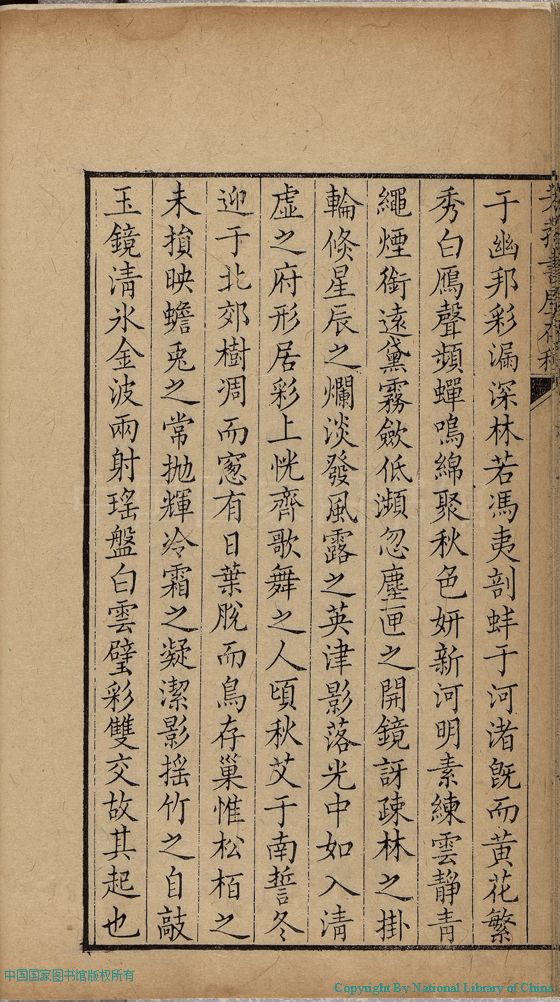 于幽邦彩漏深林若馮夷剖蚌于河渚旣而黃花繁
秀白鴈聲頻蟬鳴綿聚秋色妍新河明素練雲靜青
繩煙銜遠黛霧斂低瀕忽塵匣之開鏡訝疎林之掛
輪倏星辰之爛淡發風露之英津影落光中如入清
虛之府形居彩上恍齊歌舞之人頃秋艾于南誓冬
迎于北郊樹凋而窻有日葉脫而鳥存巢惟松栢之
未損映蟾兎之常拋輝冷霜之凝潔影搖竹之自敲
玉鏡清氷金波兩射瑤盤白雲璧彩雙交故其起也
中国国家图书馆版权所有
Copyright By National Library of China